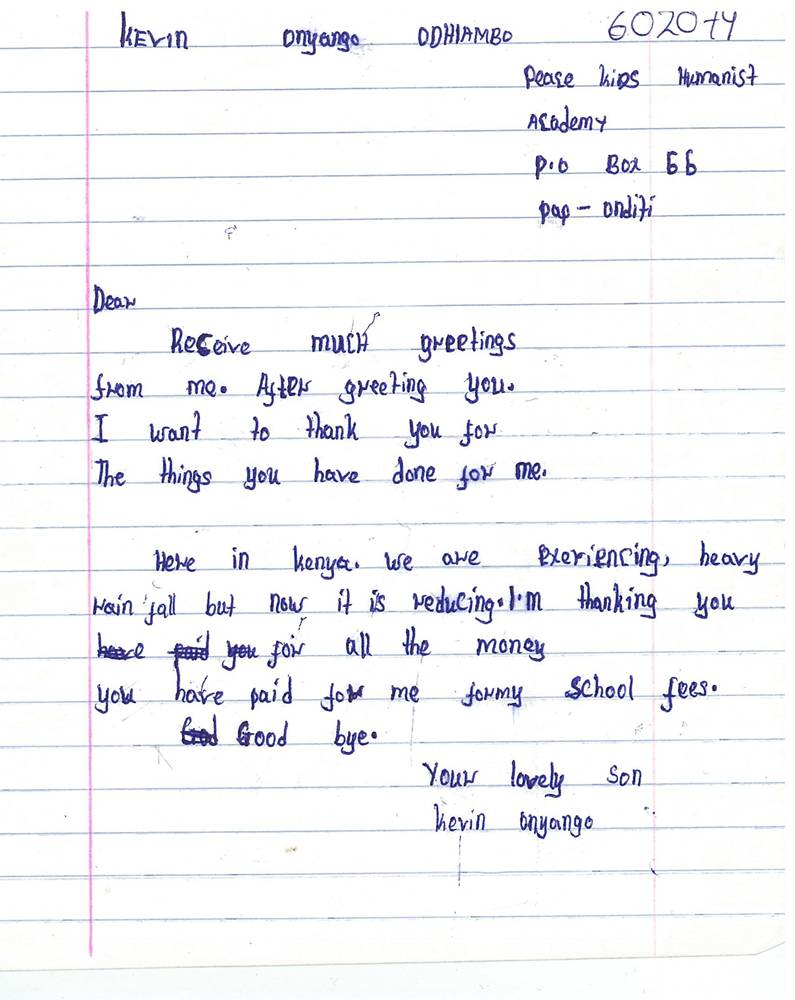 KEVIN onyango ODHIAMBO 602074
Pease kids Humanist
Academy
P.O BOX 66
pap - onditi
Dear
Receive much greetings
from me. After greeting you.
I want to thank you for
The things you have done for me.
Here in kenya. we are Exeriencing, heavy
rain fall but now it is reducing. I'm thanking you
have paid you for all the money
you have paid for me formy school fees.
God Good bye.
Your lovely son
kevin onyango